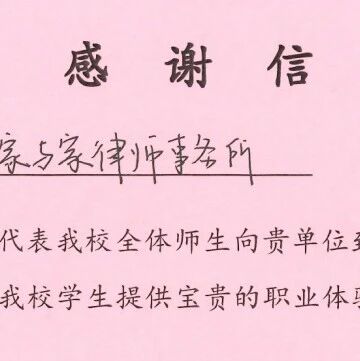 感谢信
家与家律师事务所
代表我校全体师生向贵单位致
我校学生提供宝贵的职业体验